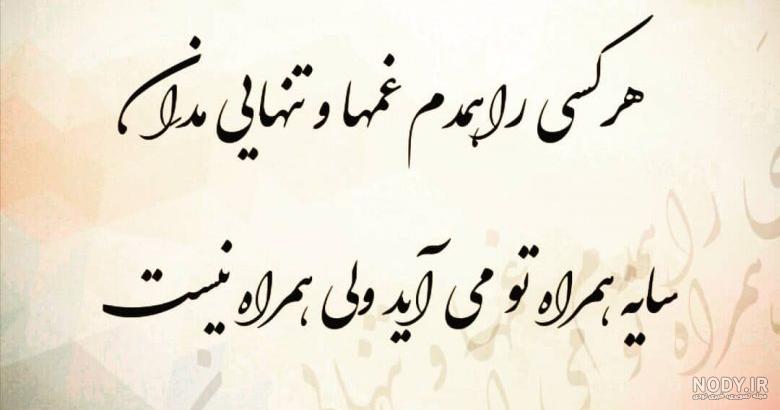 هر کسی را همدم غمها و تنهایی مدان
سایه همراه تو می آید ولی همراه نیست
NODY.IR
مجله تصویری خبری نودی